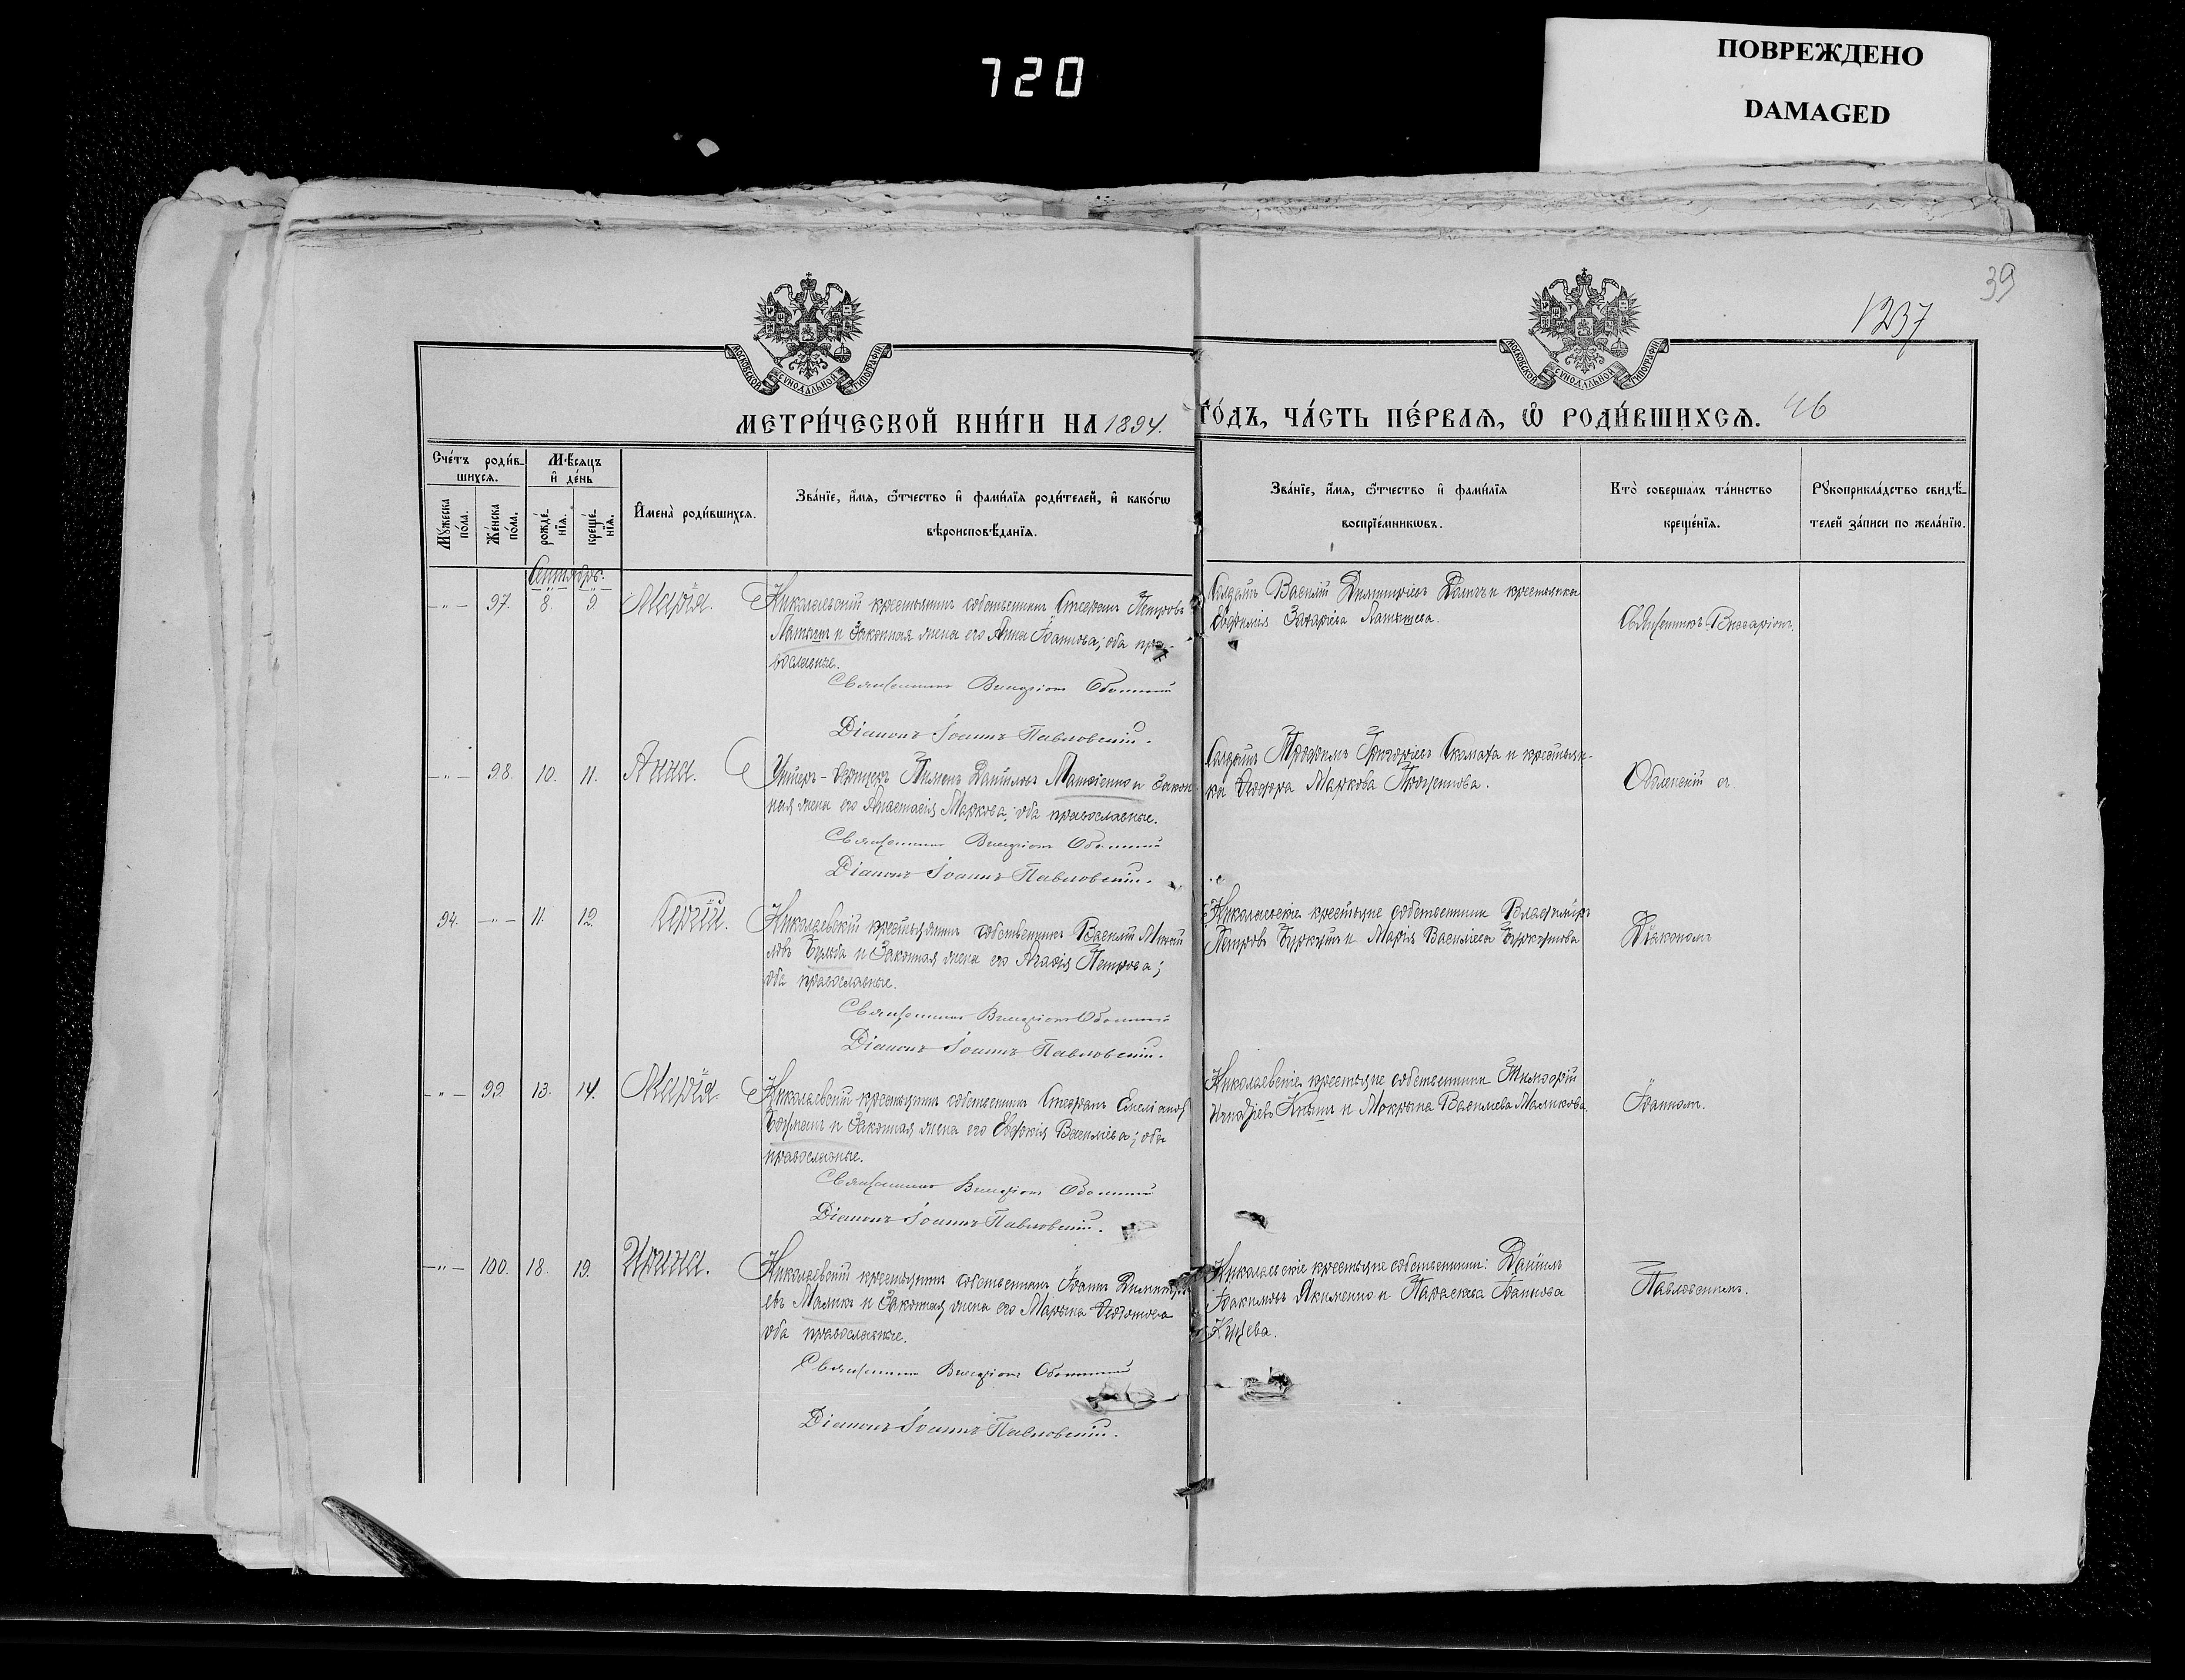 ПОВРЕЖДЕНО
DAMAGED
720
39
1237
МОСКОВСКОЙ СУНОДАЛЬНОЙ ТИПОГРАФІИ
МОСКОВСКОЙ СУНОДАЛЬНОЙ ТИПОГРАФІИ
МЕТРИ́ЧЕСКОЙ КНИ́ГИ НА 1894. ГО́ДЪ, ЧА́СТЬ ПЕ́РВАѦ, Ѡ РОДИ́ВШИХСѦ. 46
Сче́тъ роди́в-
шихсѧ.
Мѣ́сѧцъ
и҆ де́нь
Мꙋ́жеска
по́ла.
Же́нска
по́ла.
рожде́-
нїѧ.
креще́-
нїѧ.
И҆мена̀ роди́вшихсѧ.
Зва́нїе, и҆́мѧ, ѻ҆́тчество и҆ фами́лїѧ роди́телей, и҆ како́гѡ
вѣроисповѣ́данїѧ.
Зва́нїе, и҆́мѧ, ѻ҆́тчество и҆ фами́лїѧ
воспрїе́мникѡвъ.
Кто̀ совершалъ та́инство
креще́нїѧ.
Рꙋкоприкла́дство свидѣ́-
телей за́писи по жела́нїю.
Сентябрь.
— „ — 97. 8. 9. Марія. Николаевскій крестьянинъ собственникъ Стефанъ Петровъ
Латышъ и Законная жена его Анна Іоаннова; оба пра-
вославные.
Священникъ Виссаріонъ Оболенскій
Діаконъ Іоаннъ Павловскій.
Солдатъ Василій Димитріевъ и крестьянка
Евфимія Захаріева Латышева.
Священникъ Виссаріонъ
— „ — 98. 10. 11. Анна. Унтеръ-Офицеръ Пименъ Даниловъ Матвіенко и Закон-
ная жена его Анастасія Маркова; оба православные.
Священникъ Виссаріонъ Оболенскій
Діаконъ Іоаннъ Павловскій.
Солдатъ Трофимъ Григоріевъ Скомаха и крестьян-
ка Ѳеодора Маркова
Оболенскій съ
94. — „ — 11. 12. Сергій. Николаевскій крестьянинъ собственникъ Василій Михаи
ловъ Бульба и Законная жена его Агафія Петрова;
оба православные.
Священникъ Виссаріонъ Оболенскій
Діаконъ Іоаннъ Павловскій.
Николаевскіе крестьяне собственники Владиміръ
Петровъ Буркутъ и Марія Василіева Буркутова
Діакономъ
— „ — 99. 13. 14. Марія. Николаевскій крестьянинъ собственникъ Стефанъ
и Законная жена его Евдокія Василіева; оба
православные.
Священникъ Виссаріонъ Оболенскій
Діаконъ Іоаннъ Павловскій.
Николаевскіе крестьяне собственники Тимофей
Кнышъ и Мокрына Василіева Маликова.
Іоанномъ.
— „ — 100. 18. 19. Ирина. Николаевскій крестьянинъ собственникъ Іоаннъ Димитрі-
евъ Маликъ и Законная жена его Марѳа
оба православные.
Священникъ Виссаріонъ Оболенскій
Діаконъ Іоаннъ Павловскій.
Николаевскіе крестьяне собственники: Даніилъ
Іоакимовъ Якименко и Параскева Іоаннова
Куцева.
Павловскимъ.